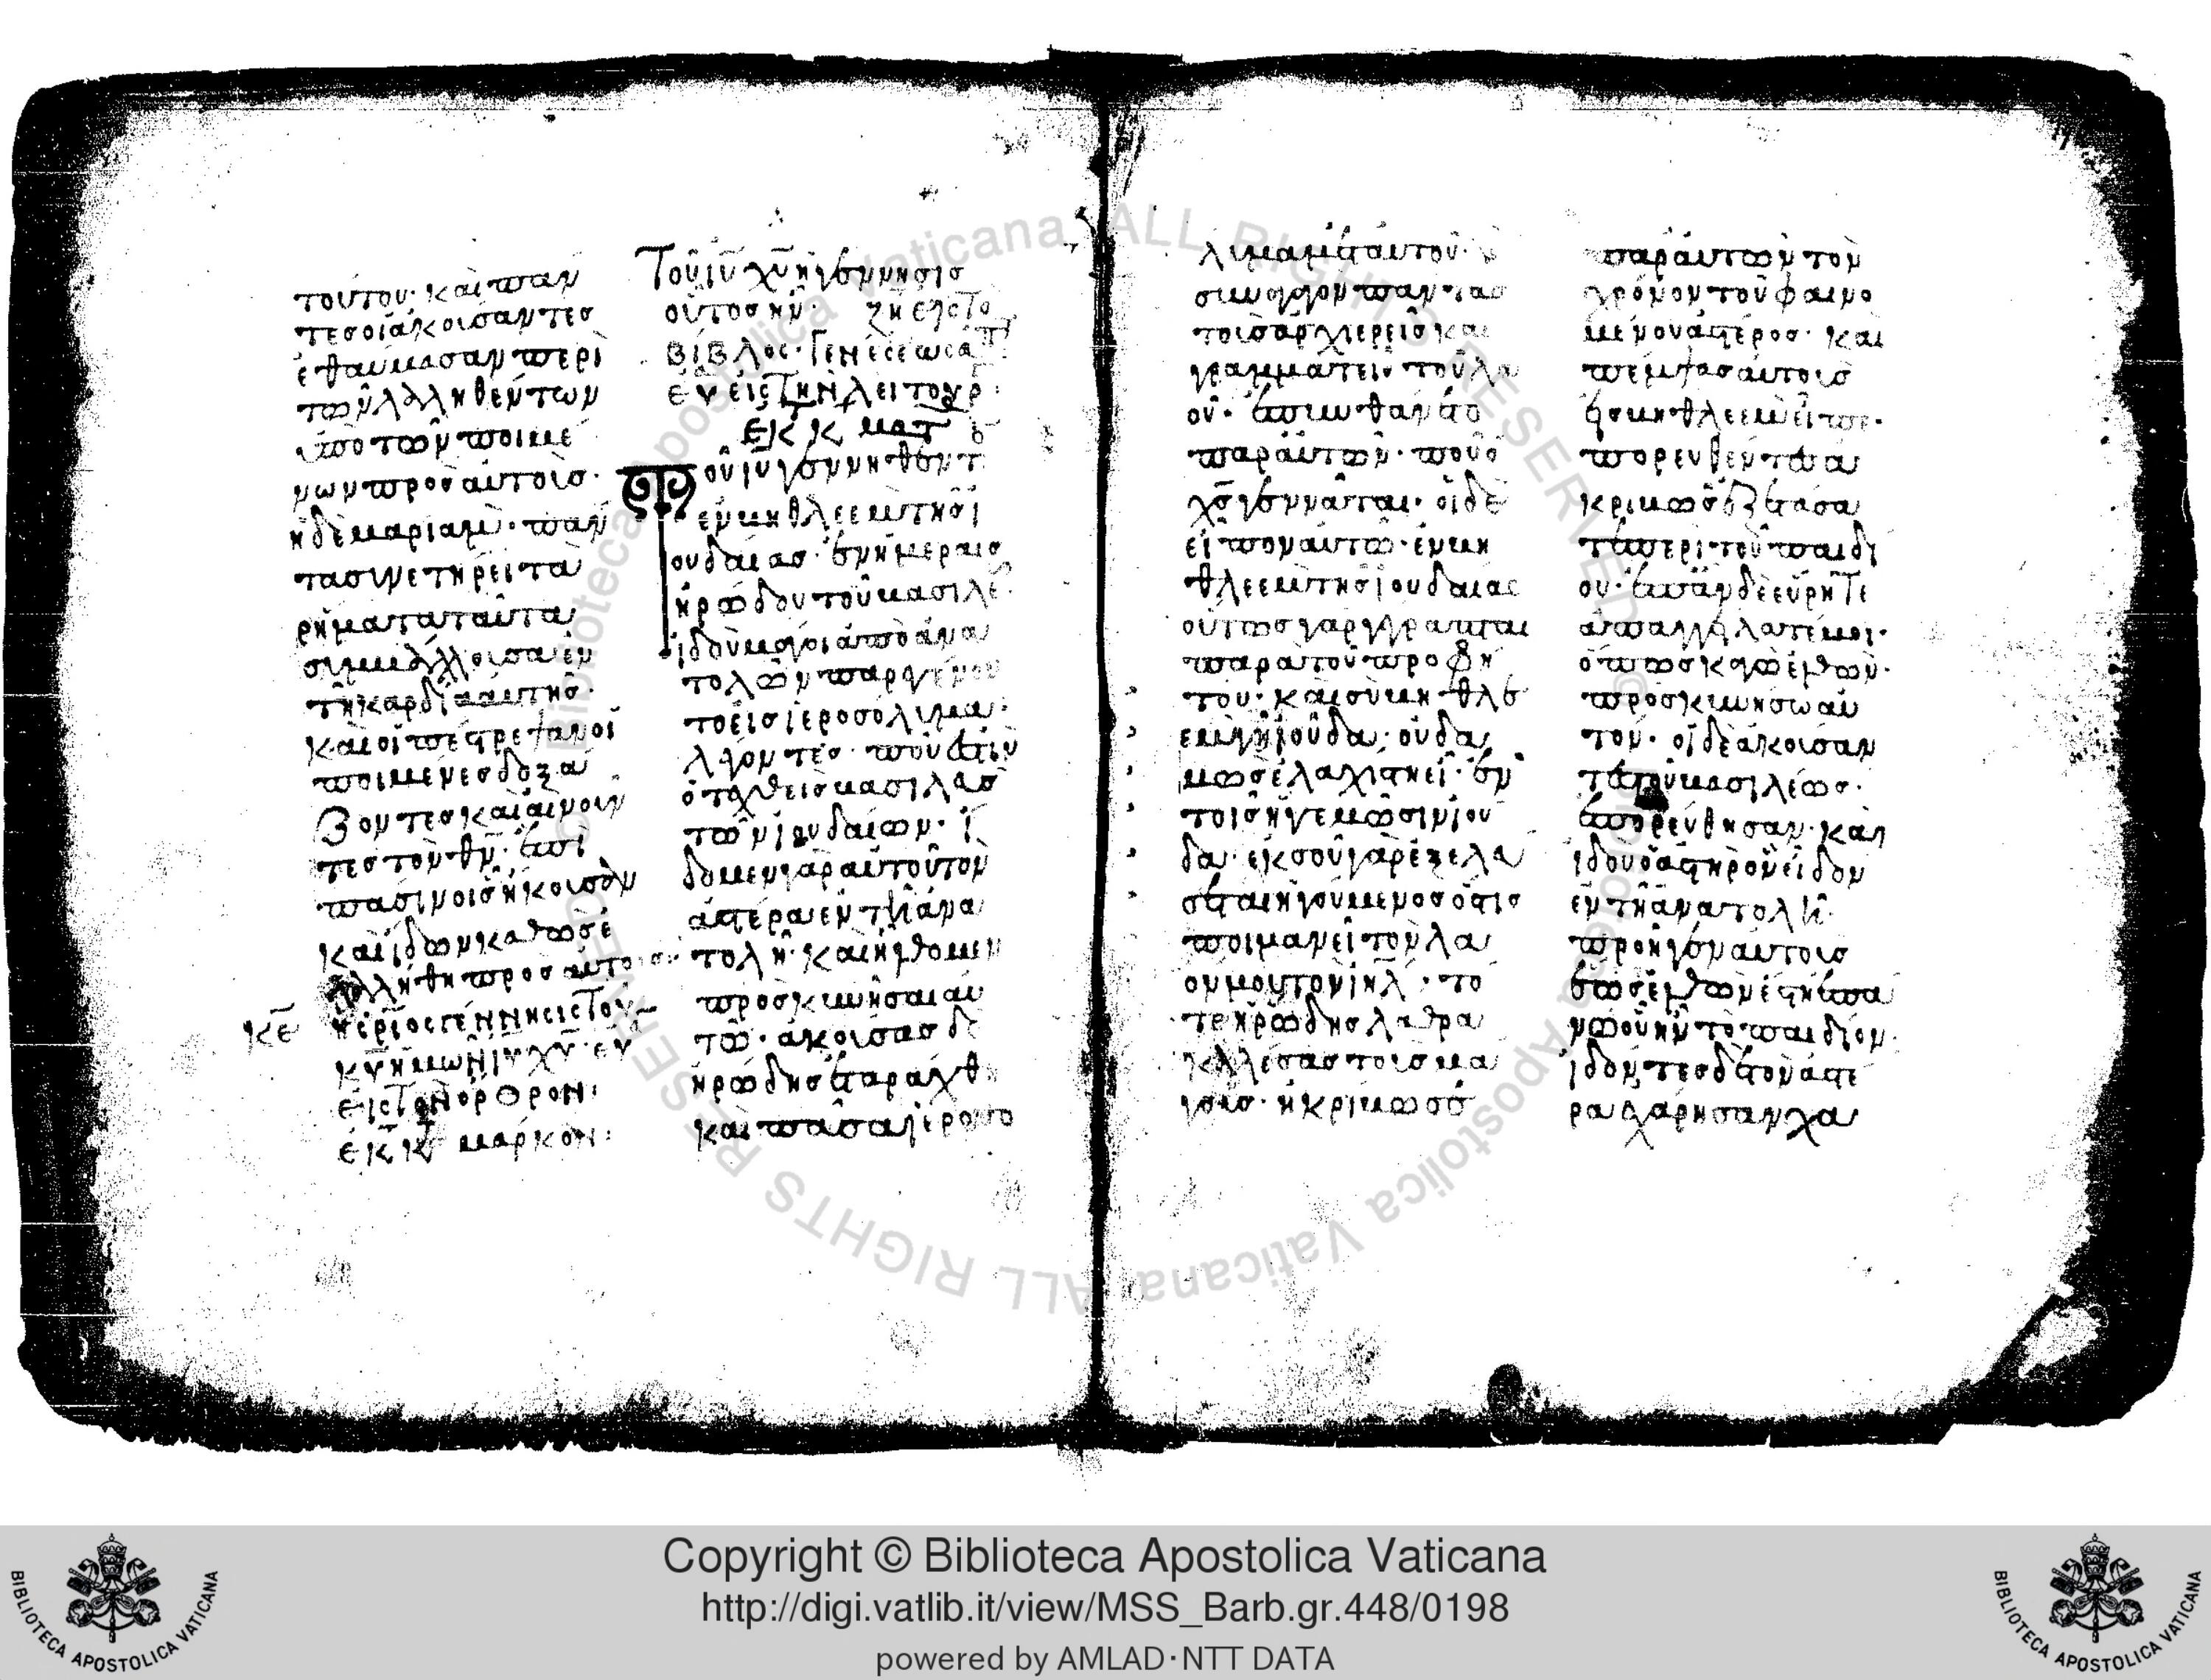 τούτου· καὶ παν
τεσ οἱ ἀκούσαντεσ
ἐθαύμασαν περὶ
τῶν λαληθέντων
ὑπὸ τῶν ποιμέ
νων προσ αὐτούσ·
ἡ δὲ μαριὰμ· παν
τα συνετήρει τὰ
ρήματα ταῦτα
συμβάλλουσα ἐν
τῆ καρδία αὐτῆσ·
καὶ ὑπέστρεψαν οἱ
ποιμένεσ δοξά
ζοντεσ καὶ αἰνοῦν
τεσ τὸν θν· ἐπὶ
πᾶσιν οἷσ ἤκουσαν
καὶ ἴδων καθὼσ ἐ
λαλήθη πρὸσ αὐτούσ·
κε
κυ ἡμῶν ιυ χυ· ευ
εἰς τὸν όρθρον·
ἐκ τ μάρκον:
Τοῦ ιυ χυ ἡ γέννησισ
οὕτοσ ἦν· ζη
Βίβλος· Γενέσεως
ευ εἰς τὴν λειτουρ
ἐκ τ ματ
Τοῦ ιυ γεννηθεντ
ἐν βηθλεὲμ τῆσ ἰ
ουδαίασ· ἐν ἡμέραισ
ἡρώδου τοῦ βασιλέ
ἰδοὺ μάγοι ἀπὸ ἀνα
τολῶν παρεγένον
το εἰσ ἱεροσόλυμα·
λέγοντεσ· ποῦ ἐστὶν
ὁ τεχθεὶσ βασιλεὺσ
τῶν ἰουδαίων· ἴ
δομεν γὰρ αὐτοῦ τὸν
ἀστέρα ἐν τῆ ἀνα
τολῆ· καὶ ἤλθομεν
προσκυνῆσαι αυ
τῶ· ἀκούσασ δὲ
ἡρώδησ ἐταράχθ
καὶ πᾶσα ἱεροσο
λυμα μετ αυτοῦ·
συναγαγον παντασ
τοὺσ ἀρχιερεῖσ και
γραμματεισ τοῦ λα
οῦ· ἐπυνθανετο
παρ αὐτῶν· ποῦ ὁ
χσ γεννᾶται· οἱ δὲ
εἶπον αὐτῶ· ἐν βη
θλεὲμ τῆσ ἰουδαιασ
οὕτωσ γαρ γέγραπται
παρὰ τοῦ προφή
του· καὶ σὺ βηθλε
ὲμ γῆ ἰοῦδα· οὐδα
μῶσ ἐλαχίστη εἶ· ἐν
τοῖσ ἡγεμῶσιν ἰού
δα· ἐκ σοῦ γὰρ ἐξελε
σεται ἡγούμενοσ όστισ
ποιμανεῖ τὸν λα
ον μου τὸν ιηλ· το
τε ἡρώδησ λαθρα
καλέσασ τουσ μα
γουσ· ἠκρίβωσε
παρ αυτῶν τὸν
χρόνον τοῦ φαινο
μένου ἀστέροσ· και
πέμψασ αὐτοὺσ
εἰσ βηθλεὲμ εἶπε·
πορευθέντεσ α
κριβῶσ ἐξετάσα
τε περὶ τοῦ παιδι
ου· ἐπὰν δὲ εὕρητε
ἀπαγγείλατέ μοι·
ὅπωσ κἀγὼ ἐλθὼν·
προσκυνήσω αὐ
τόν· οἱ δὲ ἀκούσαν
τεσ τοῦ βασιλέωσ·
ἐπορεύθησαν· και
ἰδοῦ ὁ ἀστὴρ ὃν εἶδον
ἐν τῆ ἀνατολῆ·
προῆγεν αὐτουσ
ἕωσ ἐλθὼν ἔστη ἐπα
νω οὗ ἦν τὸ παιδίον·
ἰδόντεσ δὲ τὸν ἀστέ
ρα ἐχάρησαν χα